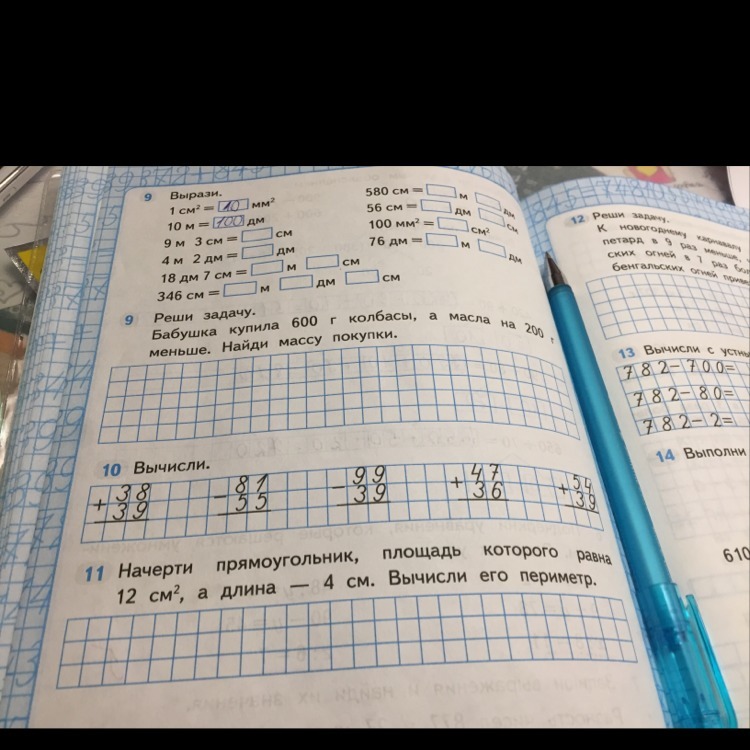 9 Вырази.
1 см² = 10 мм²
10 м = 100 дм
9 м 3 см = см
4 м 2 дм = дм
18 дм 7 см = м см
346 см = м дм см
580 см = м дм
56 см = дм см
100 мм² = см²
76 дм = м дм
9 Реши задачу.
Бабушка купила 600 г колбасы, а масла на 200 г
меньше. Найди массу покупки.
10 Вычисли.
+ 38 - 81 - 99 + 47 + 54
39 55 39 36 39
11 Начерти прямоугольник, площадь которого равна
12 см², а длина — 4 см. Вычисли его периметр.
12 Реши задачу.
К новогоднему карнавалу
петард в 9 раз меньше,
ских огней в 7 раз
бенгальских огней
13 Вычисли с
782-700=
782-80=
782-2=
14 Выполни
610